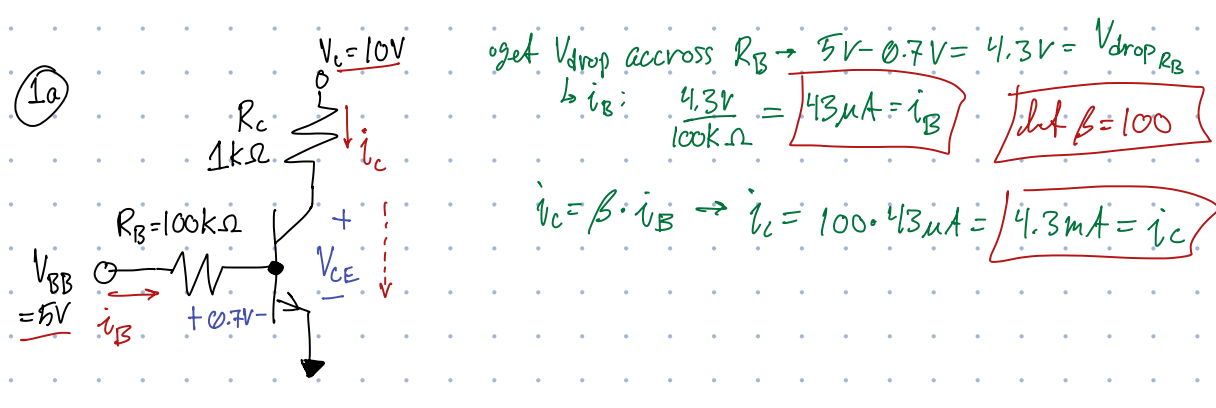 1a
V_C = 10V
R_C
1kΩ
i_C
R_B=100kΩ
+
V_CE
−
V_BB
=5V
i_B
+0.7V-
∘get V_drop accross R_B → 5V-0.7V= 4.3V = V_drop_RB
↳ i_B: 4.3V/100kΩ = 43μA = i_B
let β=100
i_C = β · i_B → i_C = 100·43μA = 4.3mA = i_C